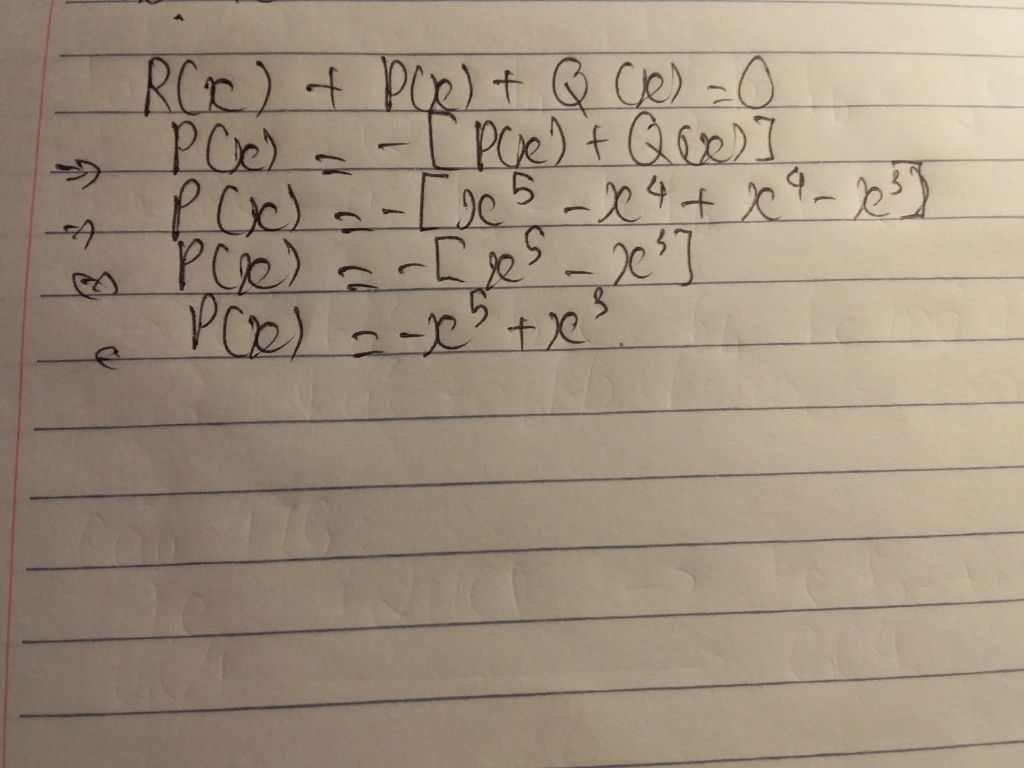 R(x) + P(x) + Q(x) = 0
⇒ P(x) = -[P(x) + Q(x)]
⇒ P(x) = -[x⁵ - x⁴ + x⁴ - x³]
⇔ P(x) = -[x⁵ - x³]
P(x) = -x⁵ + x³.